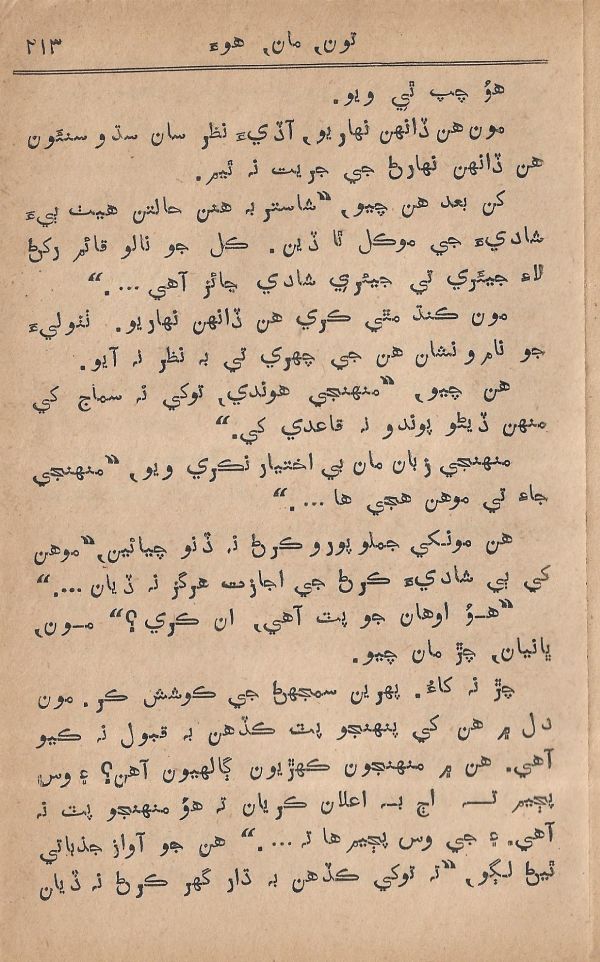 تون، مان، هوءَ ۲۱۳
هؤ چپ ٿي ويو.
مون هن ڏانهن نهاريو، آڏيءَ نظر سان سڌو سنئون
هن ڏانهن نهارڻ جي جريت نہ ٿيم.
کن بعد هن چيو، ”شاستر بہ هنن حالتن هيٺ ٻيءَ
شاديءَ جي موڪل ٿا ڏين. ڪل جو نالو قائم رکڻ
لاءِ جيئري تي جيئري شادي جائز آهي ....“
مون ڪنڌ مٿي ڪري هن ڏانهن نهاريو. ٺٺوليءَ
جو نام و نشان هن جي چهري تي بہ نظر نہ آيو.
هن چيو، ”منهنجي هوندي، توکي نہ سماج کي
منهن ڏيڻو پوندو نہ قاعدي کي.“
منهنجي زبان مان بي اختيار نڪري ويو، ”منهنجي
جاءِ تي موهن هجي ها ....“
هن مونکي جملو پورو ڪرڻ نہ ڏنو چيائين، ”موهن
کي ٻي شاديءَ ڪرڻ جي اجازت هرگز نہ ڏيان ....“
”هؤ اوهان جو پٽ آهي، ان ڪري؟“ مون،
ڀانيان، چڙ مان چيو.
چڙ نہ کاءُ. پهرين سمجهڻ جي ڪوشش ڪر. مون
دل ۾ هن کي پنهنجو پٽ ڪڏهن بہ قبول نہ ڪيو
آهي. هن ۾ منهنجون ڪهڙيون ڳالهيون آهن؟ ۽ وس
پڄيم تہ اڄ بہ اعلان ڪريان تہ هؤ منهنجو پٽ نہ
آهي. ۽ جي وس پڄيم ها تہ ....“ هن جو آواز جذباتي
ٿيڻ لڳو، ”تہ توکي ڪڏهن بہ ڌار گهر ڪرڻ نہ ڏيان